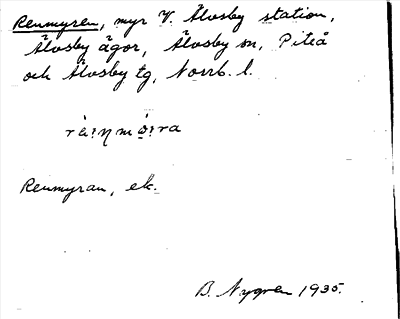 Renmyren, myr V. Älvsby station,
Älvsby ägor, Älvsby sn, Piteå
och Älvsby tg, Norrb. l.
Renmyran, ek.
B. Nygren 1935.